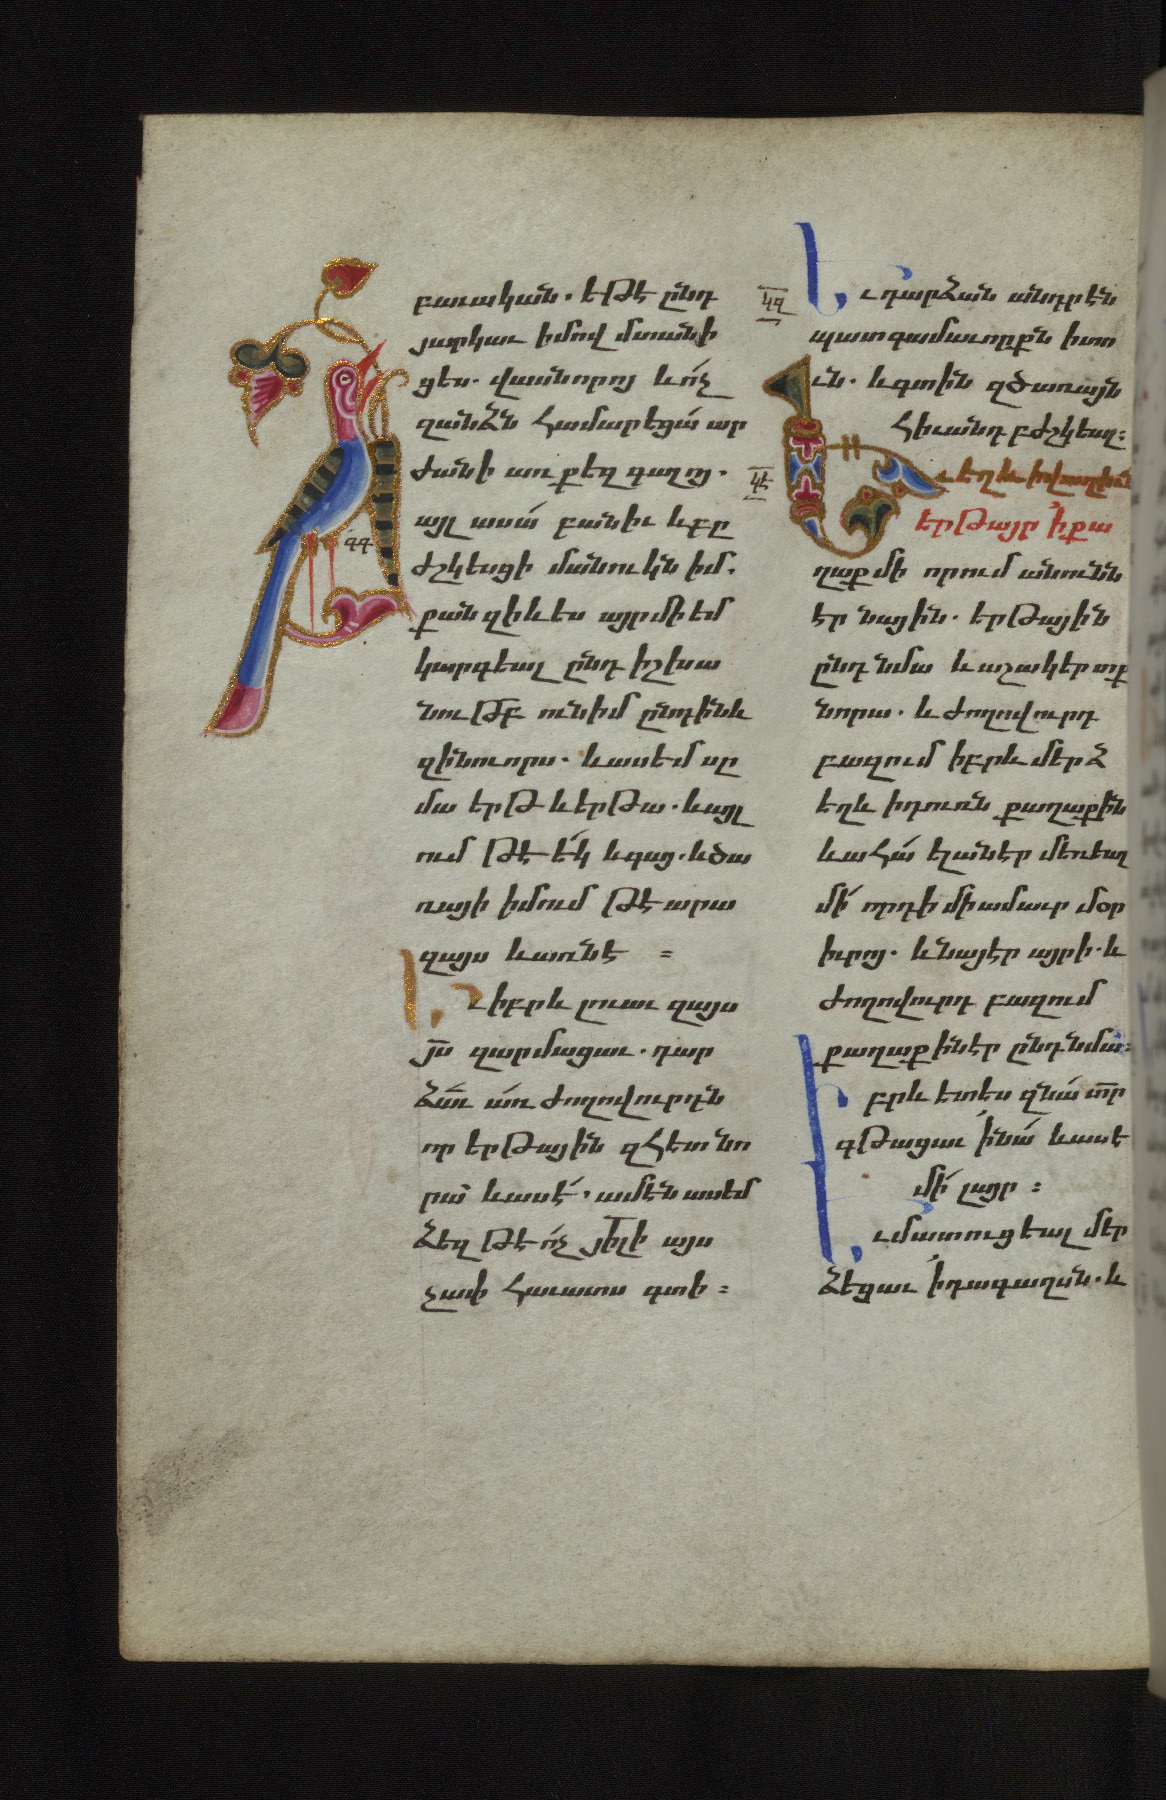 բաւական. եթէ ընդ
յարկաւ իմով մտանի
ցես. վասնորոյ և ո՛չ
զանձն համարեցա՛ ար
ժանի առ քեզ գալոյ.
այլ ասա՛ բանիւ և բը
ժշկեսցի մանուկն իմ.
քանզի և ես այր մի եմ
կարգեալ ընդ իշխա
նութբ ունիմ ընդինև
զինուորս. և ասեմ սը
մա երթ և երթա. և այլ
ում թէ ե՛կ և գայ. և ծա
ռայի իմում թէ արա
զայս և առնէ ։
Ւ իբրև լուաւ զայս
յս զարմացաւ. դար
ձաւ առ ժողովուրդն
որ երթային զհետ նո
րա և ասէ. ամէն ասեմ
ձեզ թէ ո՛չ յիլի այս
չափ հաւատս գտի ։
կգ
Ււ դարձան անդրէն
պատգամաւորքն ի տո
ւն. և գտին զծառայն
հիւանդ բժշկեալ։
կէ
Եւ եղև ի վաղիւն
երթայր ի քա
ղաք մի որում անունն
էր նային. երթային
ընդ նմա և աշակերտք
նորա. և ժողովուրդ
բազում իբրև մերձ
եղև ի դուռն քաղաքին
և ահա՛ ելանէր մեռեալ
մի՛ որդի միամաւր մօր
իւրոյ. և նա էր այրի. և
ժողովուրդ բազում
քաղաքին էր ընդ նմա։
Իբրև ետես զնա՛ տր
գթացաւ ի նա՛ և ասէ
մի՛ լար ։
Ււ մատուցեալ մեր
ձեցաւ ի դագաղսն. և